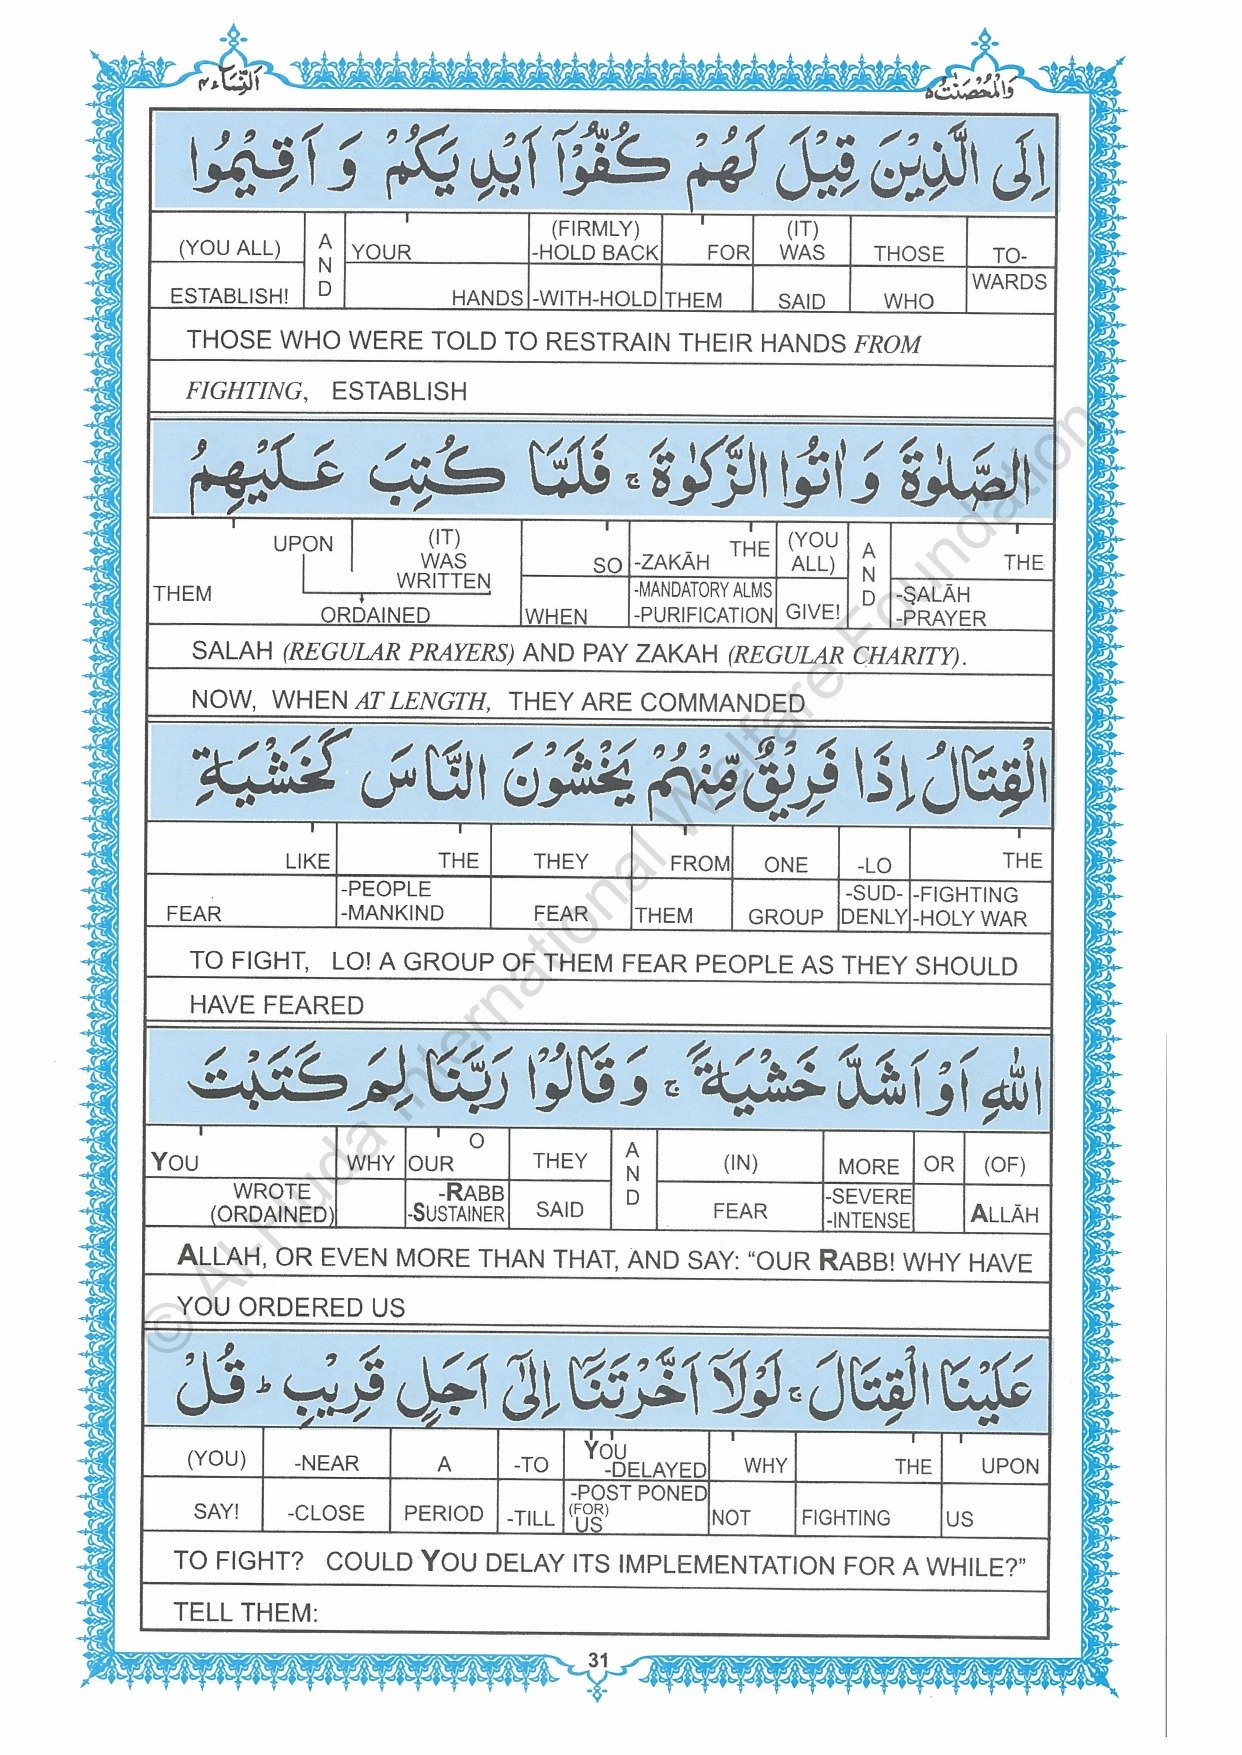 اَلنِّسَآء ٤
وَالْمُحْصَنٰتُ ٥
اِلَى الَّذِيْنَ قِيْلَ لَهُمْ كُفُّوْٓا اَيْدِيَكُمْ وَ اَقِيْمُوا
(YOU ALL) AND YOUR (FIRMLY) -HOLD BACK FOR (IT) WAS THOSE TO-
ESTABLISH! HANDS -WITH-HOLD THEM SAID WHO WARDS
THOSE WHO WERE TOLD TO RESTRAIN THEIR HANDS FROM
FIGHTING, ESTABLISH
الصَّلٰوةَ وَ اٰتُوا الزَّكٰوةَ ۚ فَلَمَّا كُتِبَ عَلَيْهِمُ
UPON (IT) WAS WRITTEN SO -ZAKĀH THE (YOU ALL) AND THE
THEM ORDAINED WHEN -MANDATORY ALMS -PURIFICATION GIVE! -ṢALĀH -PRAYER
SALAH (REGULAR PRAYERS) AND PAY ZAKAH (REGULAR CHARITY).
NOW, WHEN AT LENGTH, THEY ARE COMMANDED
الْقِتَالُ اِذَا فَرِيْقٌ مِّنْهُمْ يَخْشَوْنَ النَّاسَ كَخَشْيَةِ
LIKE THE THEY FROM ONE -LO THE
FEAR -PEOPLE -MANKIND FEAR THEM GROUP -SUD-DENLY -FIGHTING -HOLY WAR
TO FIGHT, LO! A GROUP OF THEM FEAR PEOPLE AS THEY SHOULD
HAVE FEARED
اللّٰهِ اَوْ اَشَدَّ خَشْيَةً ۚ وَ قَالُوْا رَبَّنَا لِمَ كَتَبْتَ
YOU WHY OUR O THEY AND (IN) MORE OR (OF)
WROTE (ORDAINED) -RABB -SUSTAINER SAID FEAR -SEVERE -INTENSE ALLĀH
ALLAH, OR EVEN MORE THAN THAT, AND SAY: “OUR RABB! WHY HAVE
YOU ORDERED US
عَلَيْنَا الْقِتَالَ ۚ لَوْلَآ اَخَّرْتَنَآ اِلٰٓى اَجَلٍ قَرِيْبٍ ؕ قُلْ
(YOU) -NEAR A -TO YOU -DELAYED WHY THE UPON
SAY! -CLOSE PERIOD -TILL -POST PONED (FOR) US NOT FIGHTING US
TO FIGHT? COULD YOU DELAY ITS IMPLEMENTATION FOR A WHILE?”
TELL THEM:
31
© Al-Huda International Welfare Foundation